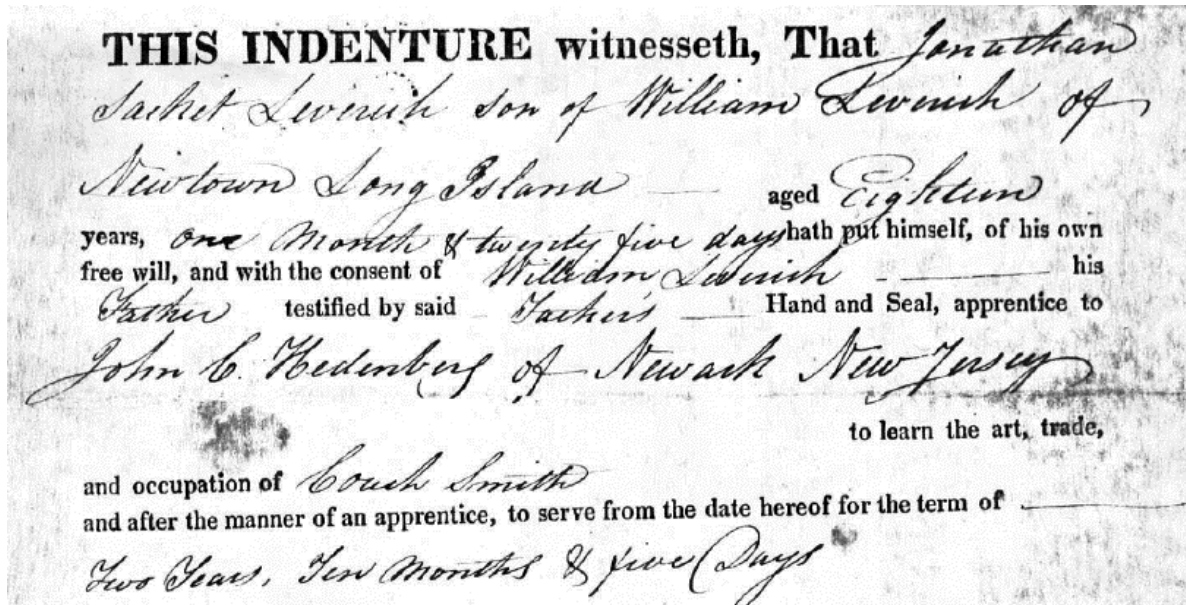 THIS INDENTURE witnesseth, That Jonathan
Sacket Leverich son of William Leverich of
Newtown Long Island aged Eighteen
years, one Month & twenty five days hath put himself, of his own
free will, and with the consent of William Leverich his
Father testified by said Father's Hand and Seal, apprentice to
John C. Hedenberg of Newark New Jersey
to learn the art, trade,
and occupation of Coach Smith
and after the manner of an apprentice, to serve from the date hereof for the term of
Two Years, Ten Months & five Days